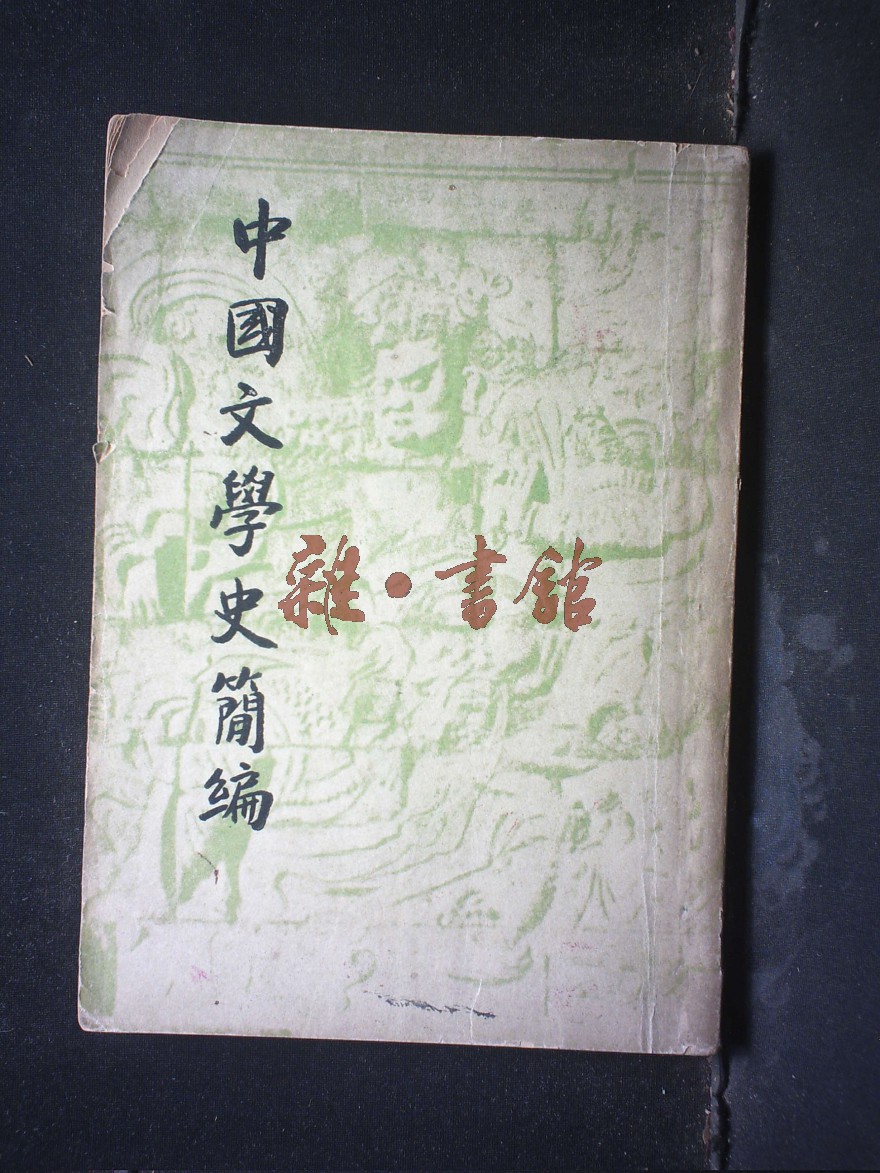 中國文學史簡編
雜·書館